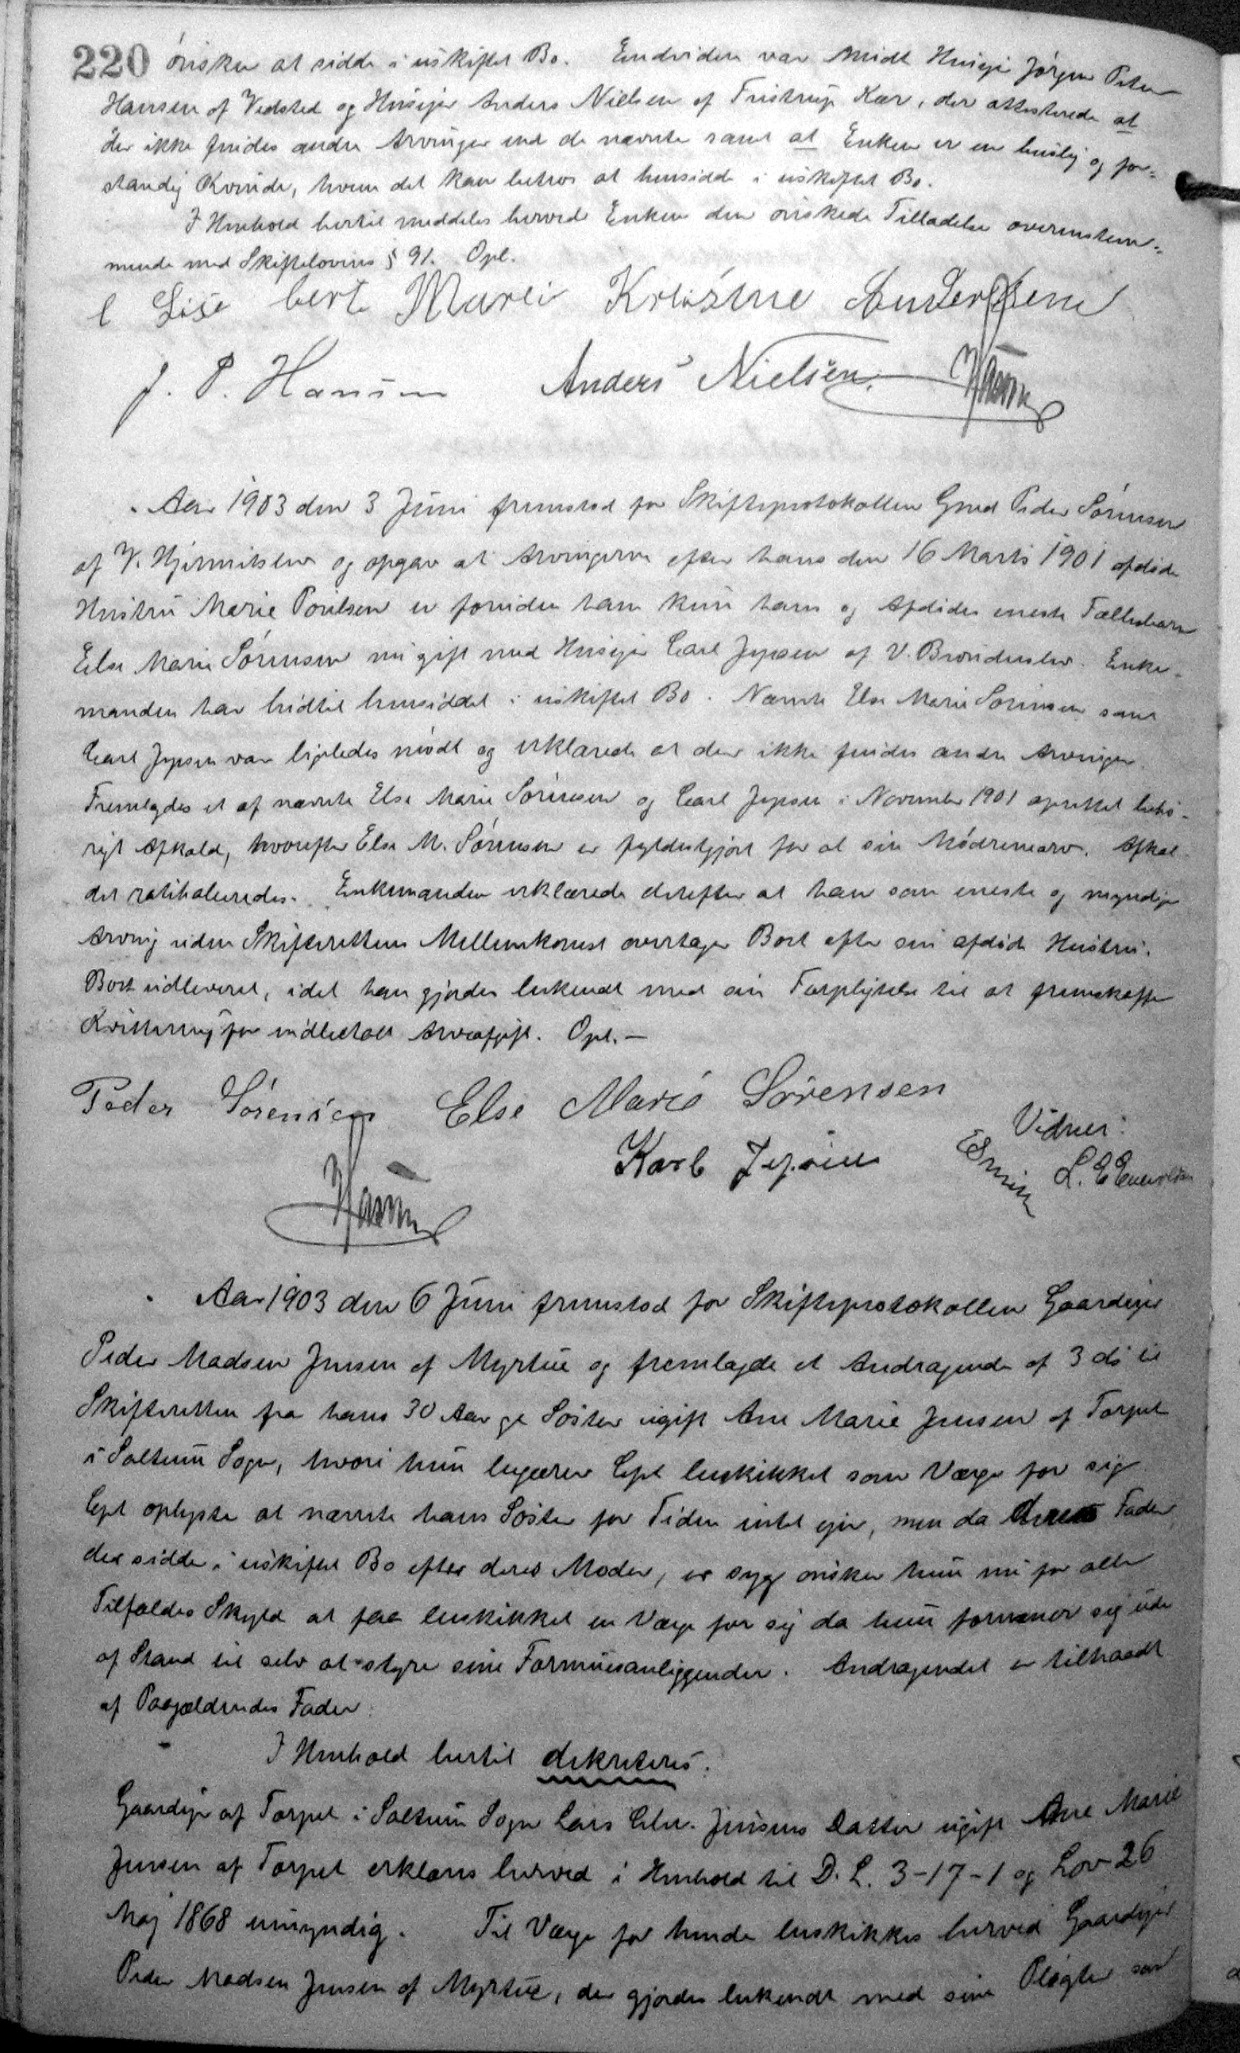 220 ønsker at sidde i uskiftet Bo. Endvidere var mødt Husejer Jørgen Peter
Hansen af Vedsted og Husejer Anders Nielsen af Fristrup Kær, der attesterede at
der ikke findes andre Arvinger end de nævnte samt at Enken er en huslig og for-
standig Kvinde, hvem det kan betros at hensidde i uskiftet Bo.
I Henhold hertil meddeles herved Enken den ønskede Tilladelse overenstem-
mende med Skiftelovens § 91. Opl.
Marei Kristine Andersen
J. P. Hansen Anders Nielsen.
Aar 1903 den 3 Juni fremstod for Skifteprotokollen Gmd Peder Sørensen
af V. Hjermitslev og opgav at Arvingerne efter hans den 16 Marts 1901 afdøde
Hustru Marie Poulsen er foruden ham kun hans og Afdødes eneste Fællesbarn
Else Marie Sørensen nu gift med Husejer Carl Jepsen af V. Brønderslev. Enke-
manden har hidtil hensiddet i uskiftet Bo. Nævnte Else Marie Sørensen samt
Carl Jepsen var ligeledes mødt og erklærede at der ikke findes andre Arvinger.
Fremlagdes et af nævnte Else Marie Sørensen og Carl Jepsen i November 1901 oprettet behø-
rigt Afkald, hvorefter Else M. Sørensen er fyldestgjort for al sin Mødrenearv. Afkal-
det ratihaberedes. Enkemanden erklærede derefter at han som eneste og myndige
Arving uden Skifterettens Mellemkomst overtager Boet efter sin afdøde Hustru.
Boet udleveret, idet han gjordes bekendt med sin Forpligtelse til at fremskaffe
Kvittering for indbetalt Arveafgift. Opl. —
Peder Sørensen Else Marie Sørensen
Vidner:
Karl Jepsen
Aar 1903 den 6 Juni fremstod for Skifteprotokollen Gaardejer
Peder Madsen Jensen af Myrtue og fremlagde et Andragende af 3 ds til
Skifteretten fra hans 30 Aar gl Søster ugift Ane Marie Jensen af Torpet
i Saltum Sogn, hvori hun begærer Cpt beskikket som Værge for sig
Cpt oplyste at nævnte hans Søster for Tiden intet ejer, men da deres Fader
der sidder i uskiftet Bo efter deres Moder, er syg ønsker hun nu for alle
Tilfældes Skyld at faa beskikket en Værge for sig da hun formener sig ude
af Stand til selv at styre sine Formuesanliggender. Andragendet er tiltraadt
af Paagældendes Fader.
I Henhold hertil dekreteres:
Gaardejer af Torpet i Saltum Sogn Lars Chr. Jensens Datter ugift Ane Marie
Jensen af Torpet erklæres herved i Henhold til D. L. 3-17-1 og Lov 26
Maj 1868 umyndig. Til Værge for hende beskikkes herved Gaardejer
Peder Madsen Jensen af Myrtue, der gjordes bekendt med sine Pligter som